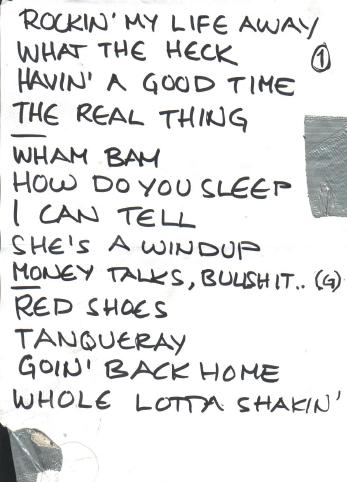 ROCKIN' MY LIFE AWAY
WHAT THE HECK
1
HAVIN' A GOOD TIME
THE REAL THING
WHAM BAM
HOW DO YOU SLEEP
I CAN TELL
SHE'S A WINDUP
MONEY TALKS, BULLSHIT.. (G)
RED SHOES
TANQUERAY
GOIN' BACK HOME
WHOLE LOTTA SHAKIN'